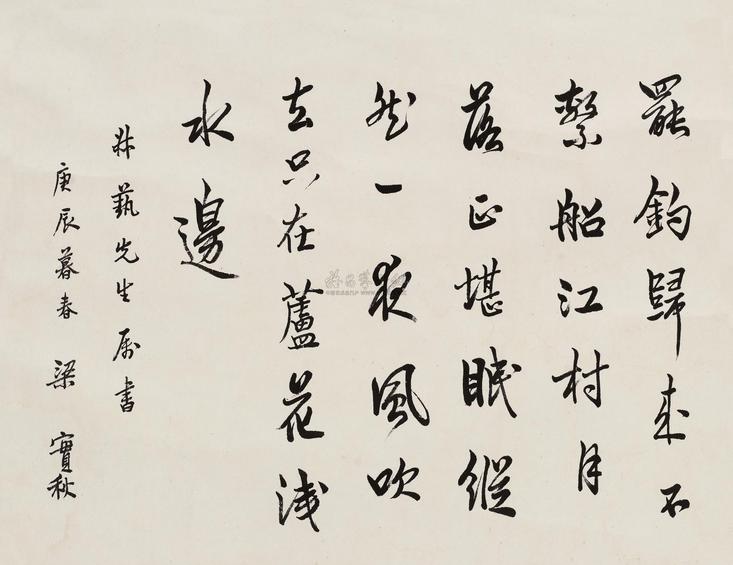 罷釣歸來不
繫船江村月
落正堪眠縱
然一夜風吹
去只在蘆花淺
水邊
藝先生屬書
庚辰暮春 梁實秋